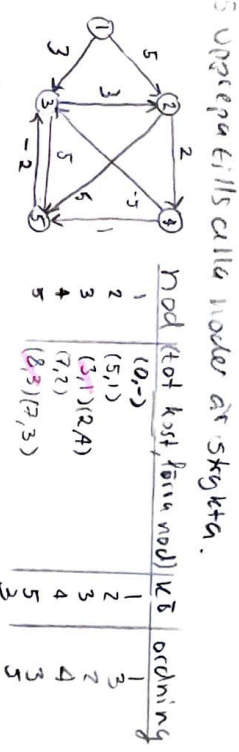 5 upprepa tills alla noder är strykta.
1 2 3 4 5
5 3 3 2 5 6 1 -2
nod (tot kost, förra nod) kö ordning
1 (0,-) 1 1
2 (5,1) 2 3
3 (3,1) (2,4) 3 2
4 (7,2) 4 4
5 (8,3) (7,3) 5 3
3 5